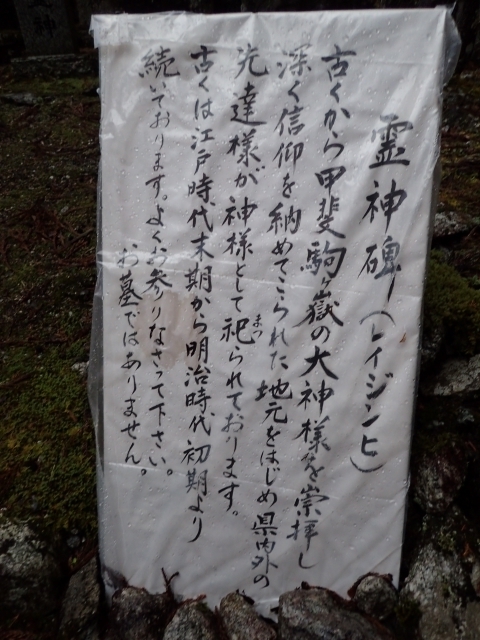 霊神碑(レイジンヒ)
古くから甲斐駒ヶ嶽の大神様を崇拝し
深く信仰を納めてこられた地元をはじめ県内外の
先達様が神様として祀られております。
まつ
古くは江戸時代末期から明治時代初期より
続いております。よくお参りなさって下さい。
お墓ではありません。